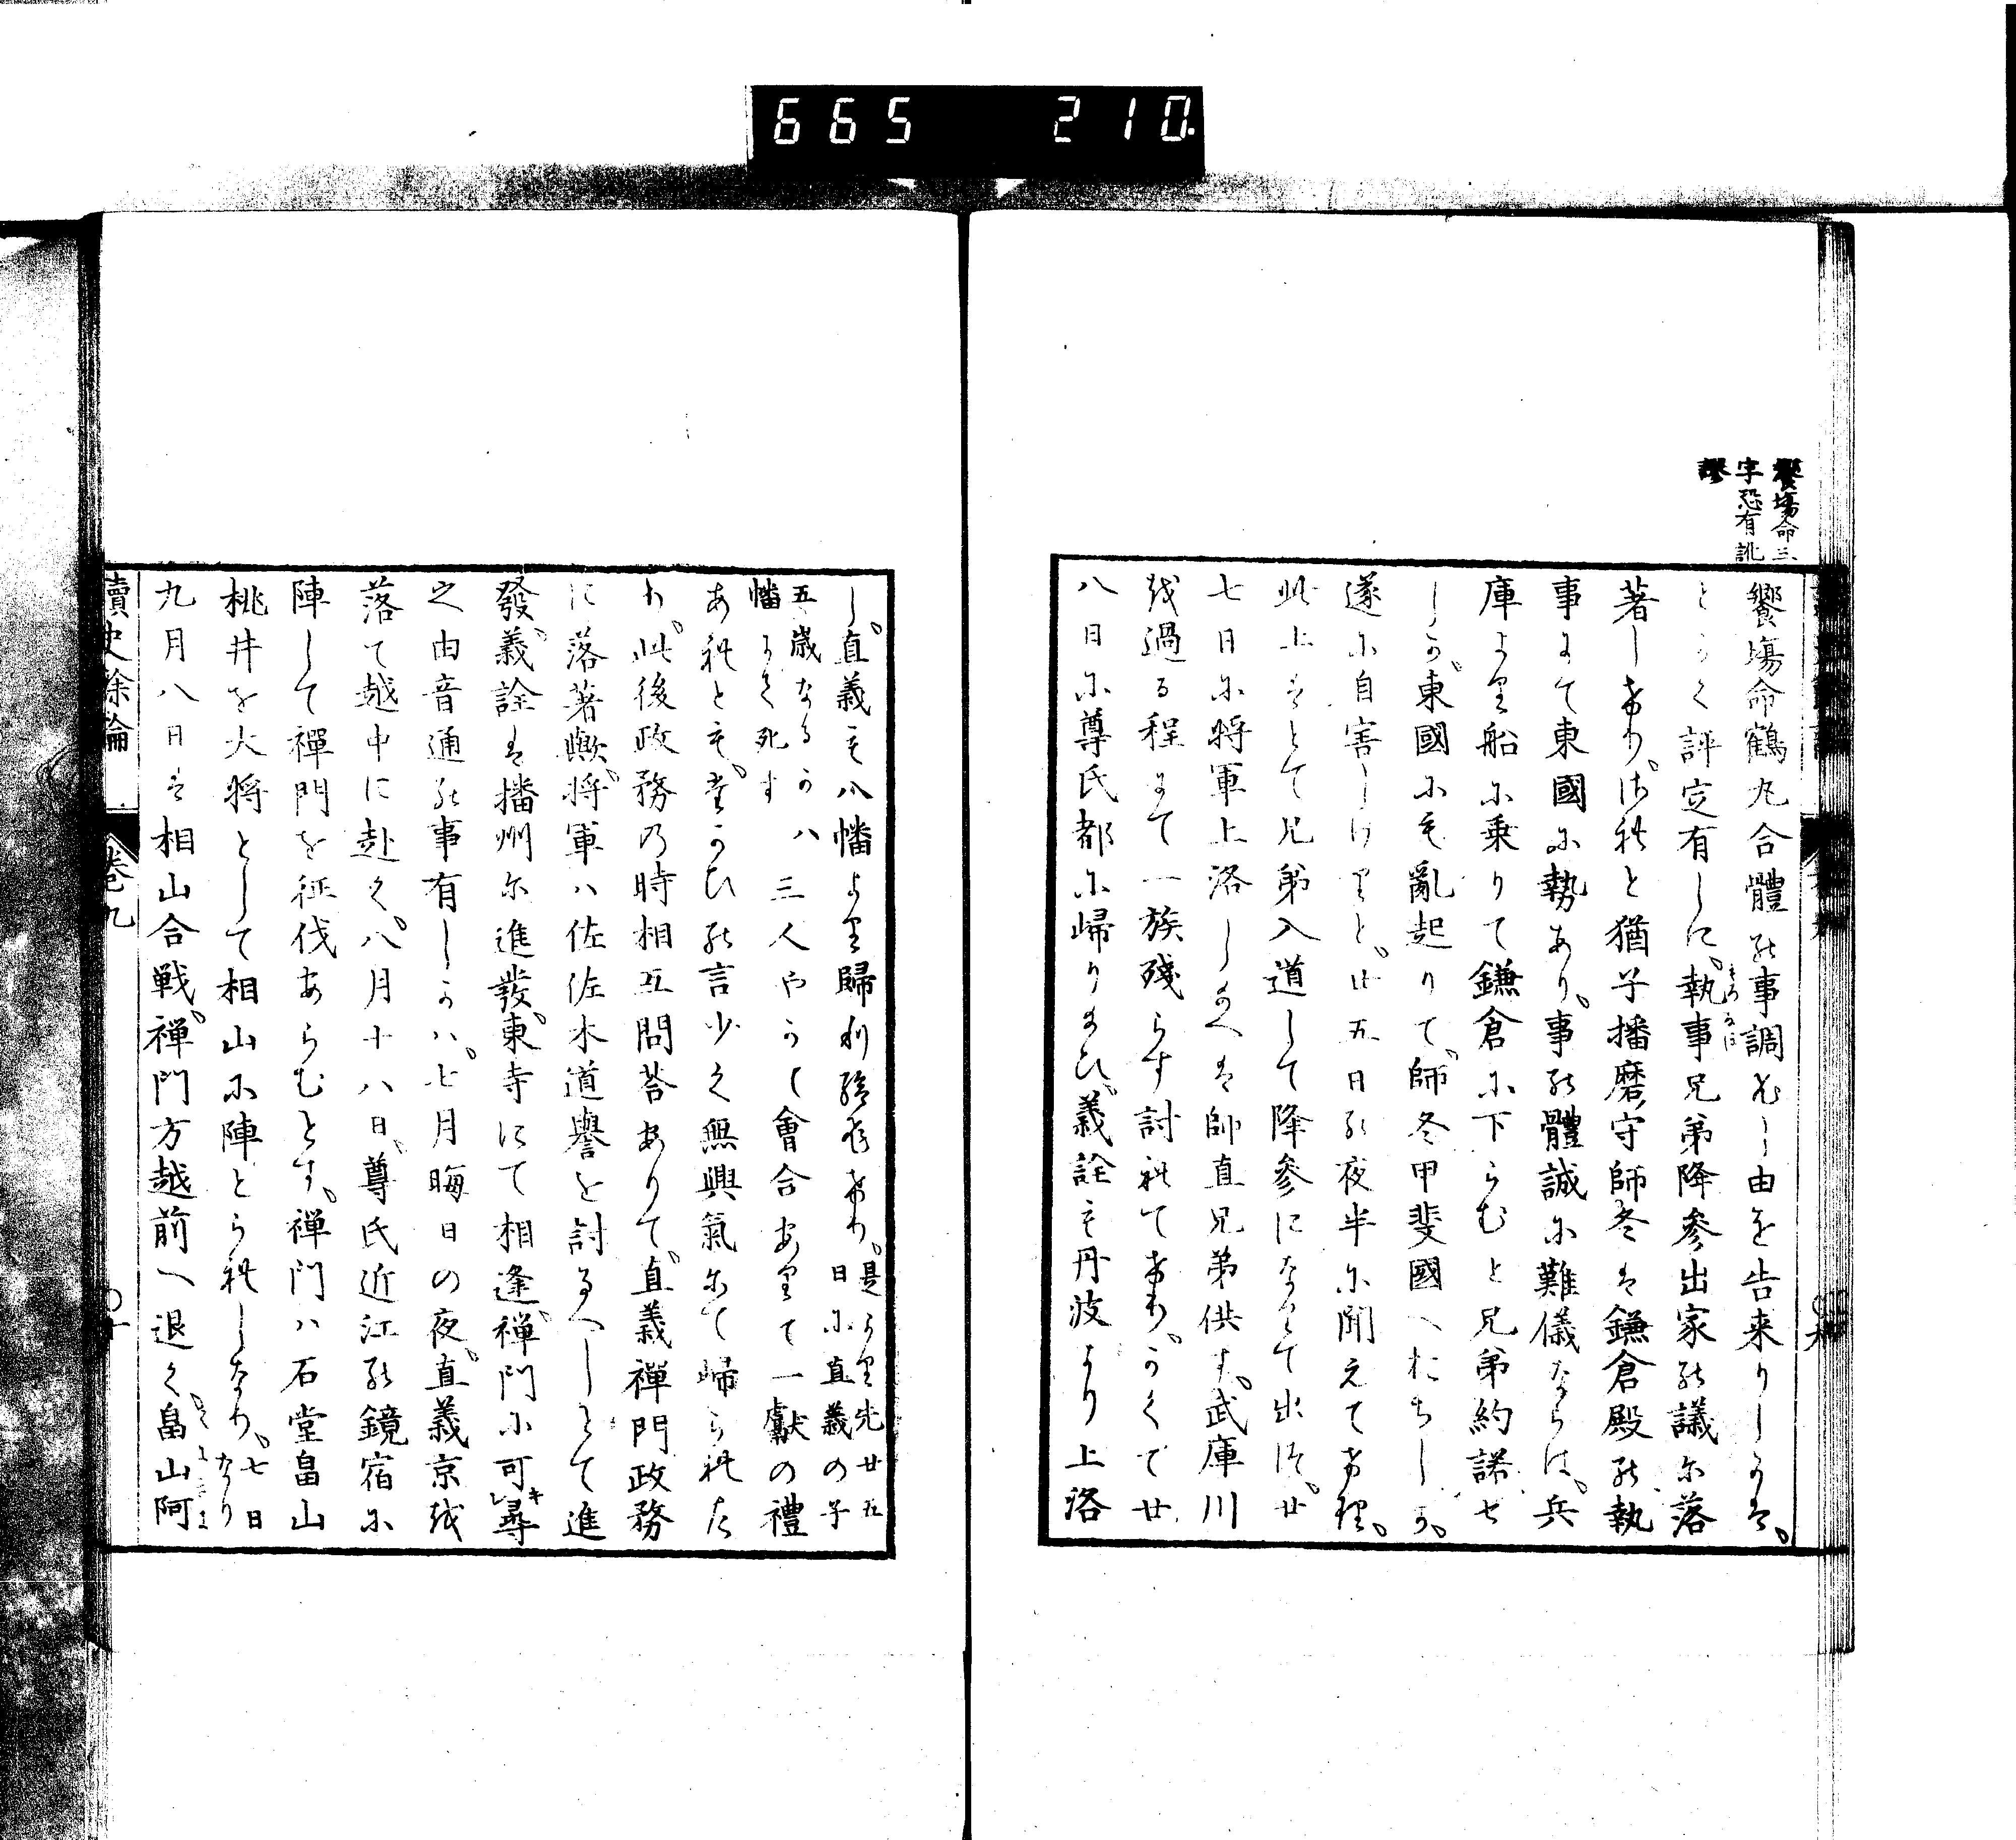 665 210
饗場命三
字恐有訛
謬
饗塲命鶴丸合體の事調ひし由を告来りしかは、
とかく評定有しに、執事兄弟降參出家の議に落
著しけり、されと猶子播磨守師冬は鎌倉殿の執
事にて東國に勢あり、事の體誠に難儀ならは、兵
庫より船に乗りて鎌倉に下らむと兄弟約諾せ
しか、東國にも亂起りて、師冬甲斐國へおちしか、
遂に自害しけりと、廿五日の夜半に聞えけれ、
此上はとて兄弟入道して降參になりて出づ、廿
七日に将軍上洛し給へは師直兄弟供す、武庫川
を過る程にて一族殘らす討れてけり、かくて廿
八日に尊氏都に歸り給ひ、義詮も丹波より上洛
し、直義も八幡より歸り給ひけり、是より先廿五
日に直義の子
五歳なるか八
幡にて死す 三人やかて會合ありて一獻の禮
あれとも、互ひの言少く無興氣にて歸られた
り、此後政務の時相互問荅ありて、直義禪門政務
に落著歟、将軍ハ佐佐木道譽を討るへしとて進
發、義詮は播州に進發、東寺にて相逢、禅門に可キレ尋
之由音通の事有しかハ、七月晦日の夜、直義京を
落て越中に赴く、八月十八日、尊氏近江の鏡宿に
陣して禪門を征伐あらむとす、禅門ハ石堂畠山
桃井を大将として相山に陣とられしなり、七日
なり
九月八日は相山合戰、禅門方越前へ退く、畠山阿
讀史餘論 卷九